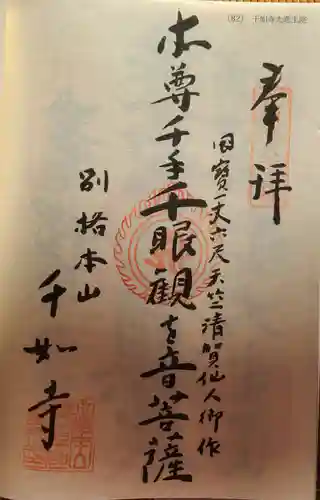 (82) 千如寺大悲王院
奉拝
国寳一丈六尺天竺清賀仙人御作
本尊千手千眼観世音菩薩
別格本山
千如寺